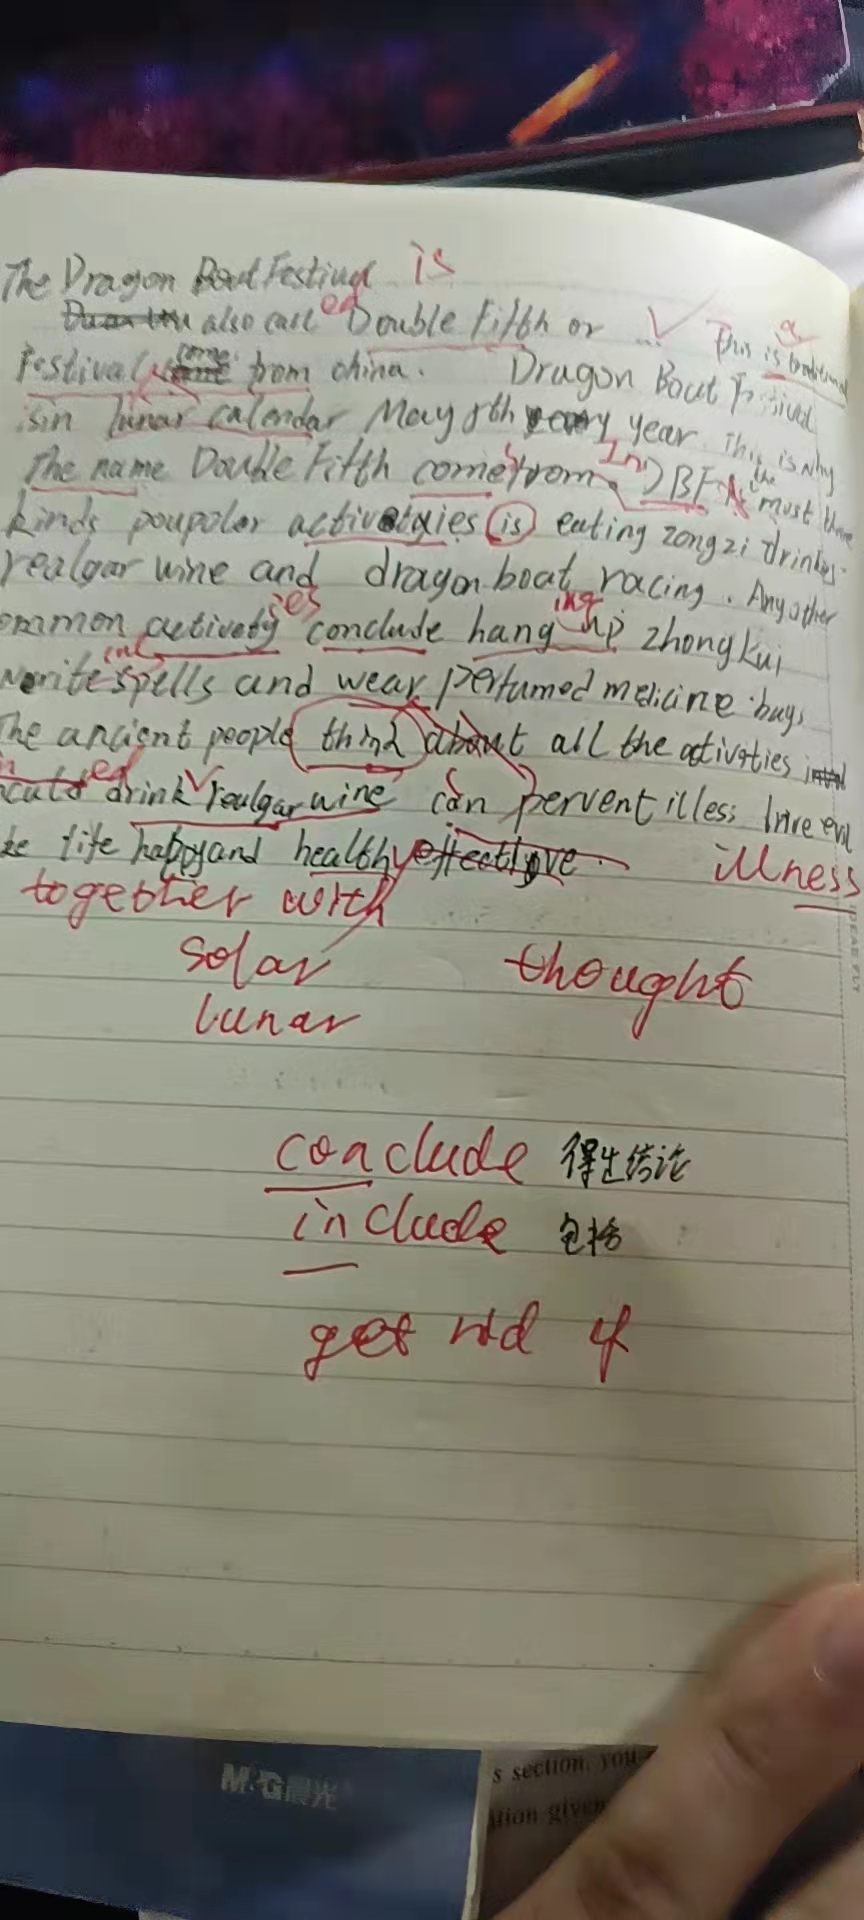 The Dragon Bout Festival is
also call ed Double Fifth or ... This is a traditional
Festival come from china. Dragon Bout Festival
isin lunar calendar May 5th every year. This is why
The name Double Fifth come s from In DBF the most three
kinds poupoler activties is eating zongzi drinking
realgar wine and dragon boat racing. Any other
ommon activety ies conclude hang ing up zhong kui
write spells and wear perfumed medicine bags
The ancient people think about all the activities
in cu ed drink realgar wine can pervent illess evil
ke life happy and healthy illness
together with
solar thought
lunar
conclude 得出结论
include 包括
get rid of
M&G晨光
s section, you
ation given